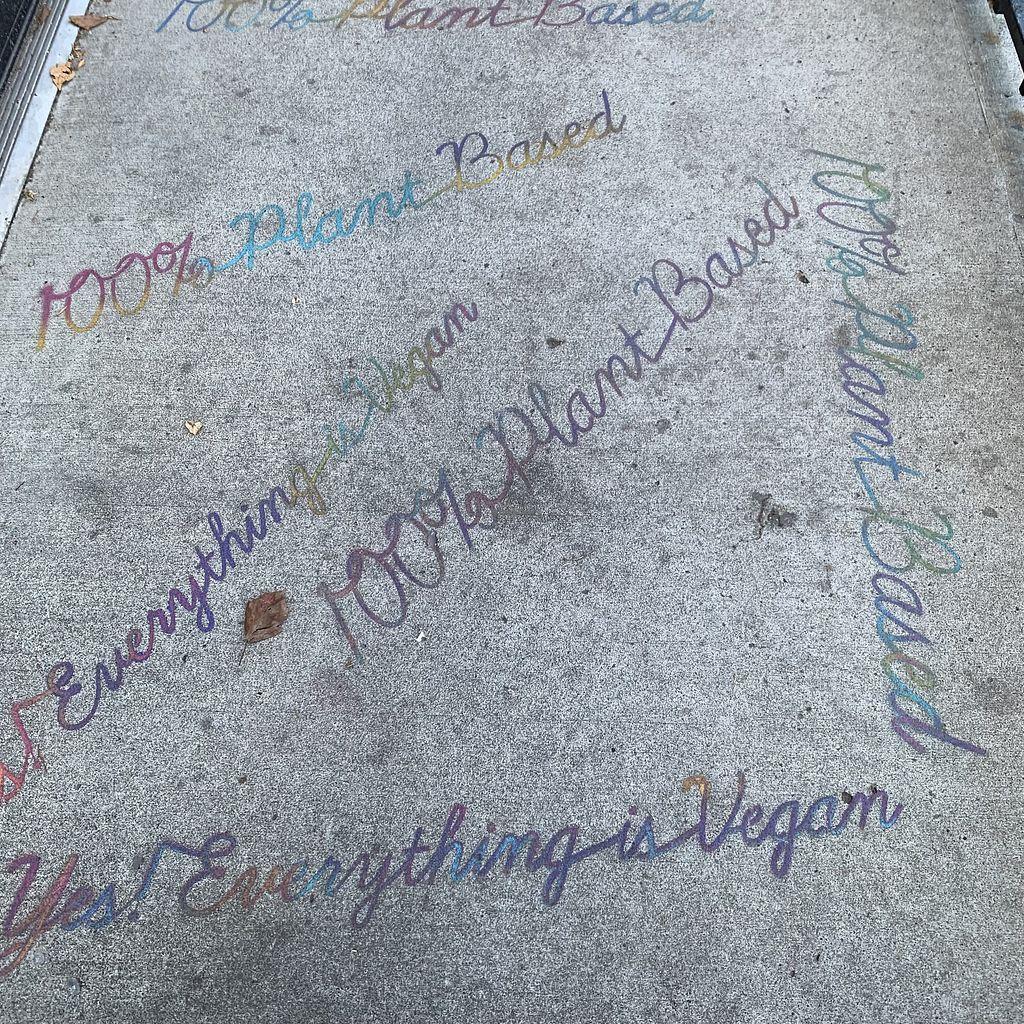 100% Plant Based
100% Plant Based
100% Plant Based
100% Plant Based
s! Everything is Vegan
Yes! Everything is Vegan